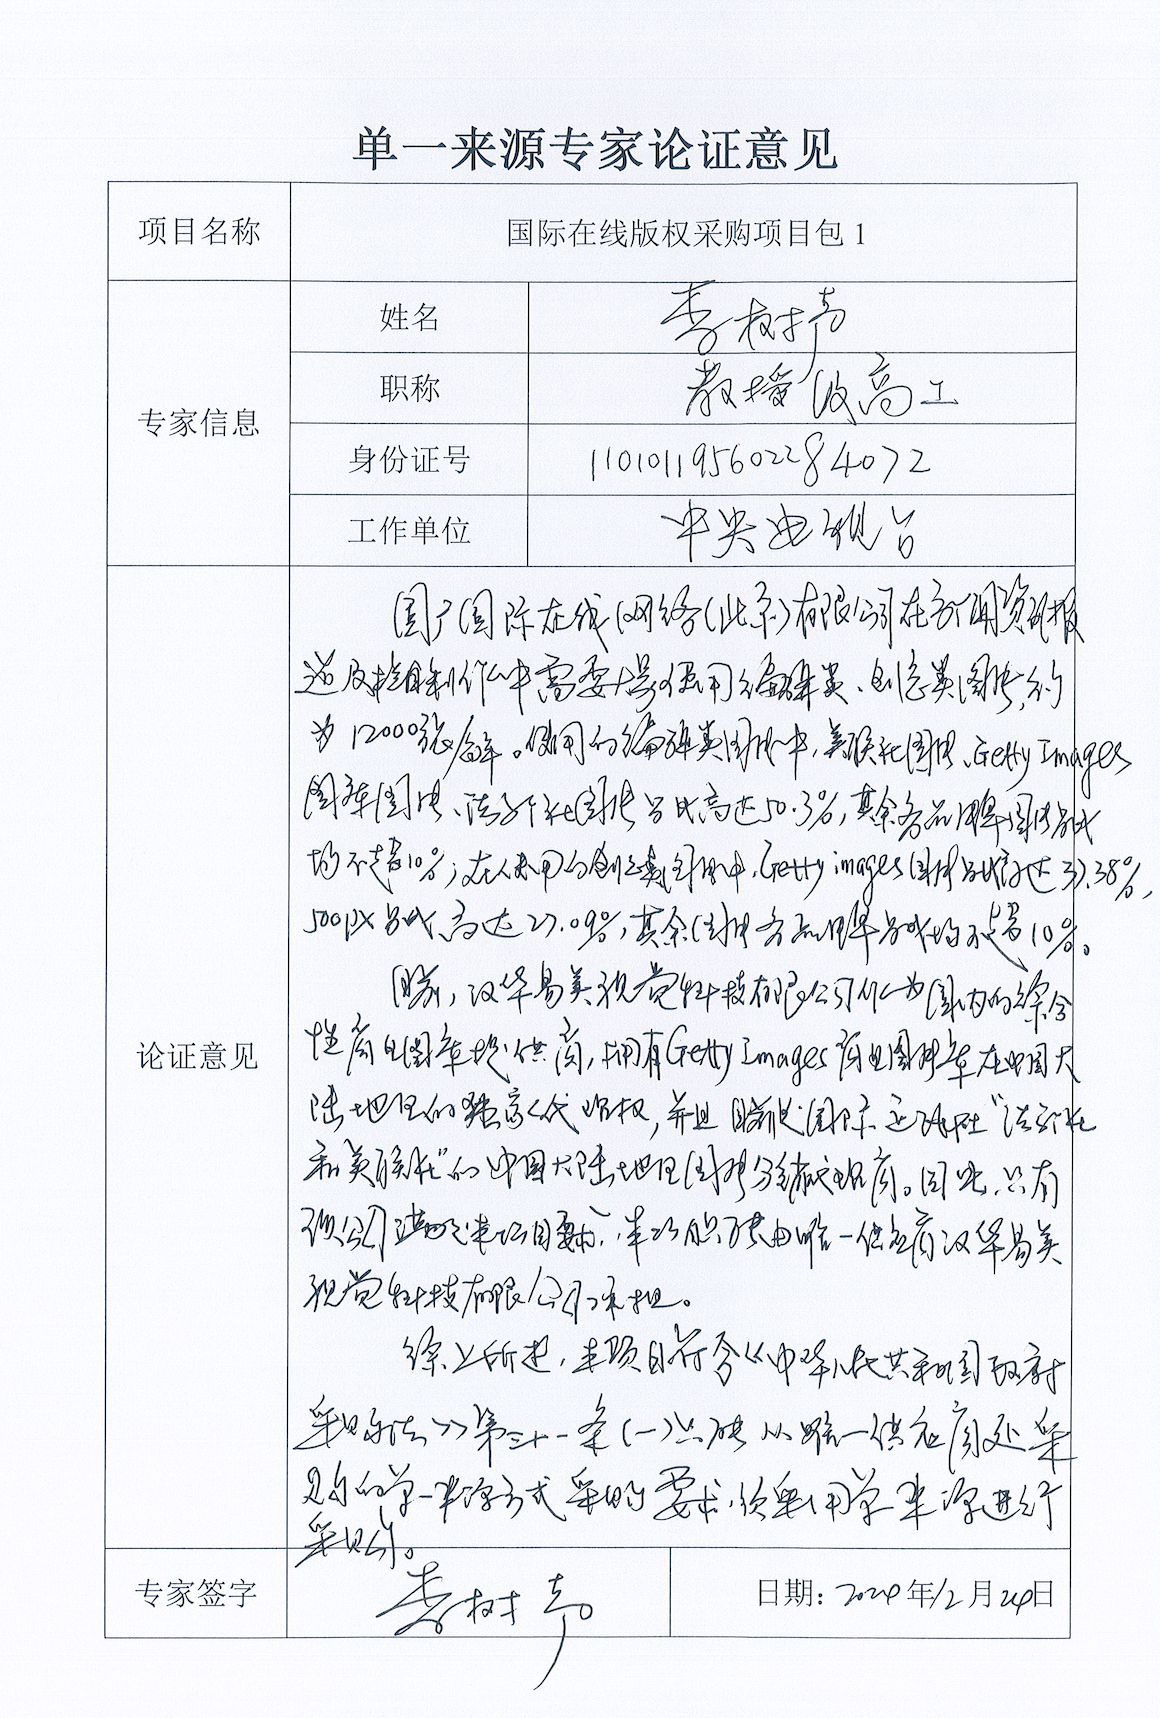 单一来源专家论证意见
项目名称
国际在线版权采购项目包 1
专家信息
姓名
李树
职称
教授级高工
身份证号
110101195602284072
工作单位
中央电视台
论证意见
国广国际在线网络(北京)有限公司在新闻资讯报
道及栏目制作中需要大量使用编辑类、创意类图片,约
为12000张/年。使用的编辑类图片中,美联社图片、Getty Images
图库图片、法新社图片占比高达50.3%,其余各品牌图片占比
均不超10%;在使用的创意类图片中,Getty images图片占比高达37.38%,
500px占比高达27.09%,其余图片各品牌占比均不超10%。
目前,汉华易美视觉科技有限公司作为国内的综合
性商业图库提供商,拥有Getty Images商业图片库在中国大
陆地区的独家代理权,并且目前是国际通讯社“法新社
和美联社”的中国大陆地区图片分销代理商。因此,只有
该公司满足本项目要求,本次只能由唯一供应商汉华易美
视觉科技有限公司承担。
综上所述,本项目符合《中华人民共和国政府
采购法》第三十一条(一)只能从唯一供应商处采
购的单一来源方式采购的要求,须采用单一来源进行
采购。
专家签字
李树
日期: 2024年12月24日